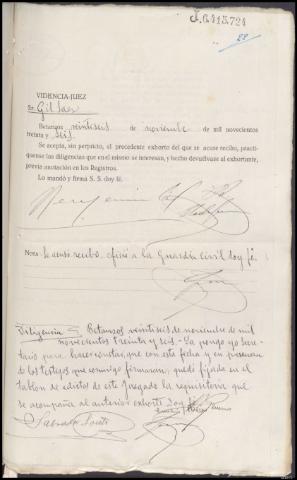 J.6415.724
22
VIDENCIA-JUEZ
Sr. Gil Saez
Betanzos veintiseis de noviembre de mil novecientos
treinta y seis.
Se acepta, sin perjuicio, el precedente exhorto del que se acuse recibo, practi-
quense las diligencias que en el mismo se interesan, y hecho devuélvase al exhortante,
previa anotación en los Registros.
Lo mandó y firma S. S. doy fé.
Nota: Se acusó recibo, ofició a la Guardia Civil doy fé.
Diligencia = Betanzos veintiseis de noviembre de mil
novecientos treinta y seis.- La pongo yo Secre-
tario para hacer constar, que con esta fecha y en presencia
de los testigos que conmigo firmaron, quedó fijada en el
tablon de edictos de este Juzgado la requisitoria que
se acompaña al anterior exhorto doy fé.